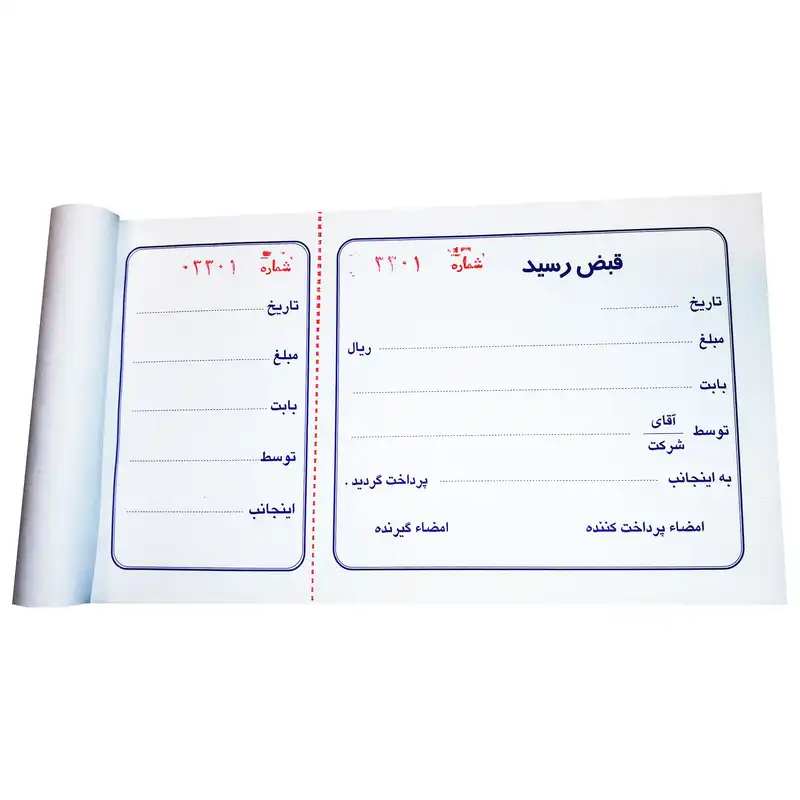 قبض رسید
شماره ۳۳۰۱
تاریخ
مبلغ ریال
بابت
توسط آقای
شرکت
به اینجانب پرداخت گردید.
امضاء پرداخت کننده امضاء گیرنده
شماره ۰۳۳۰۱
تاریخ
مبلغ
بابت
توسط
اینجانب